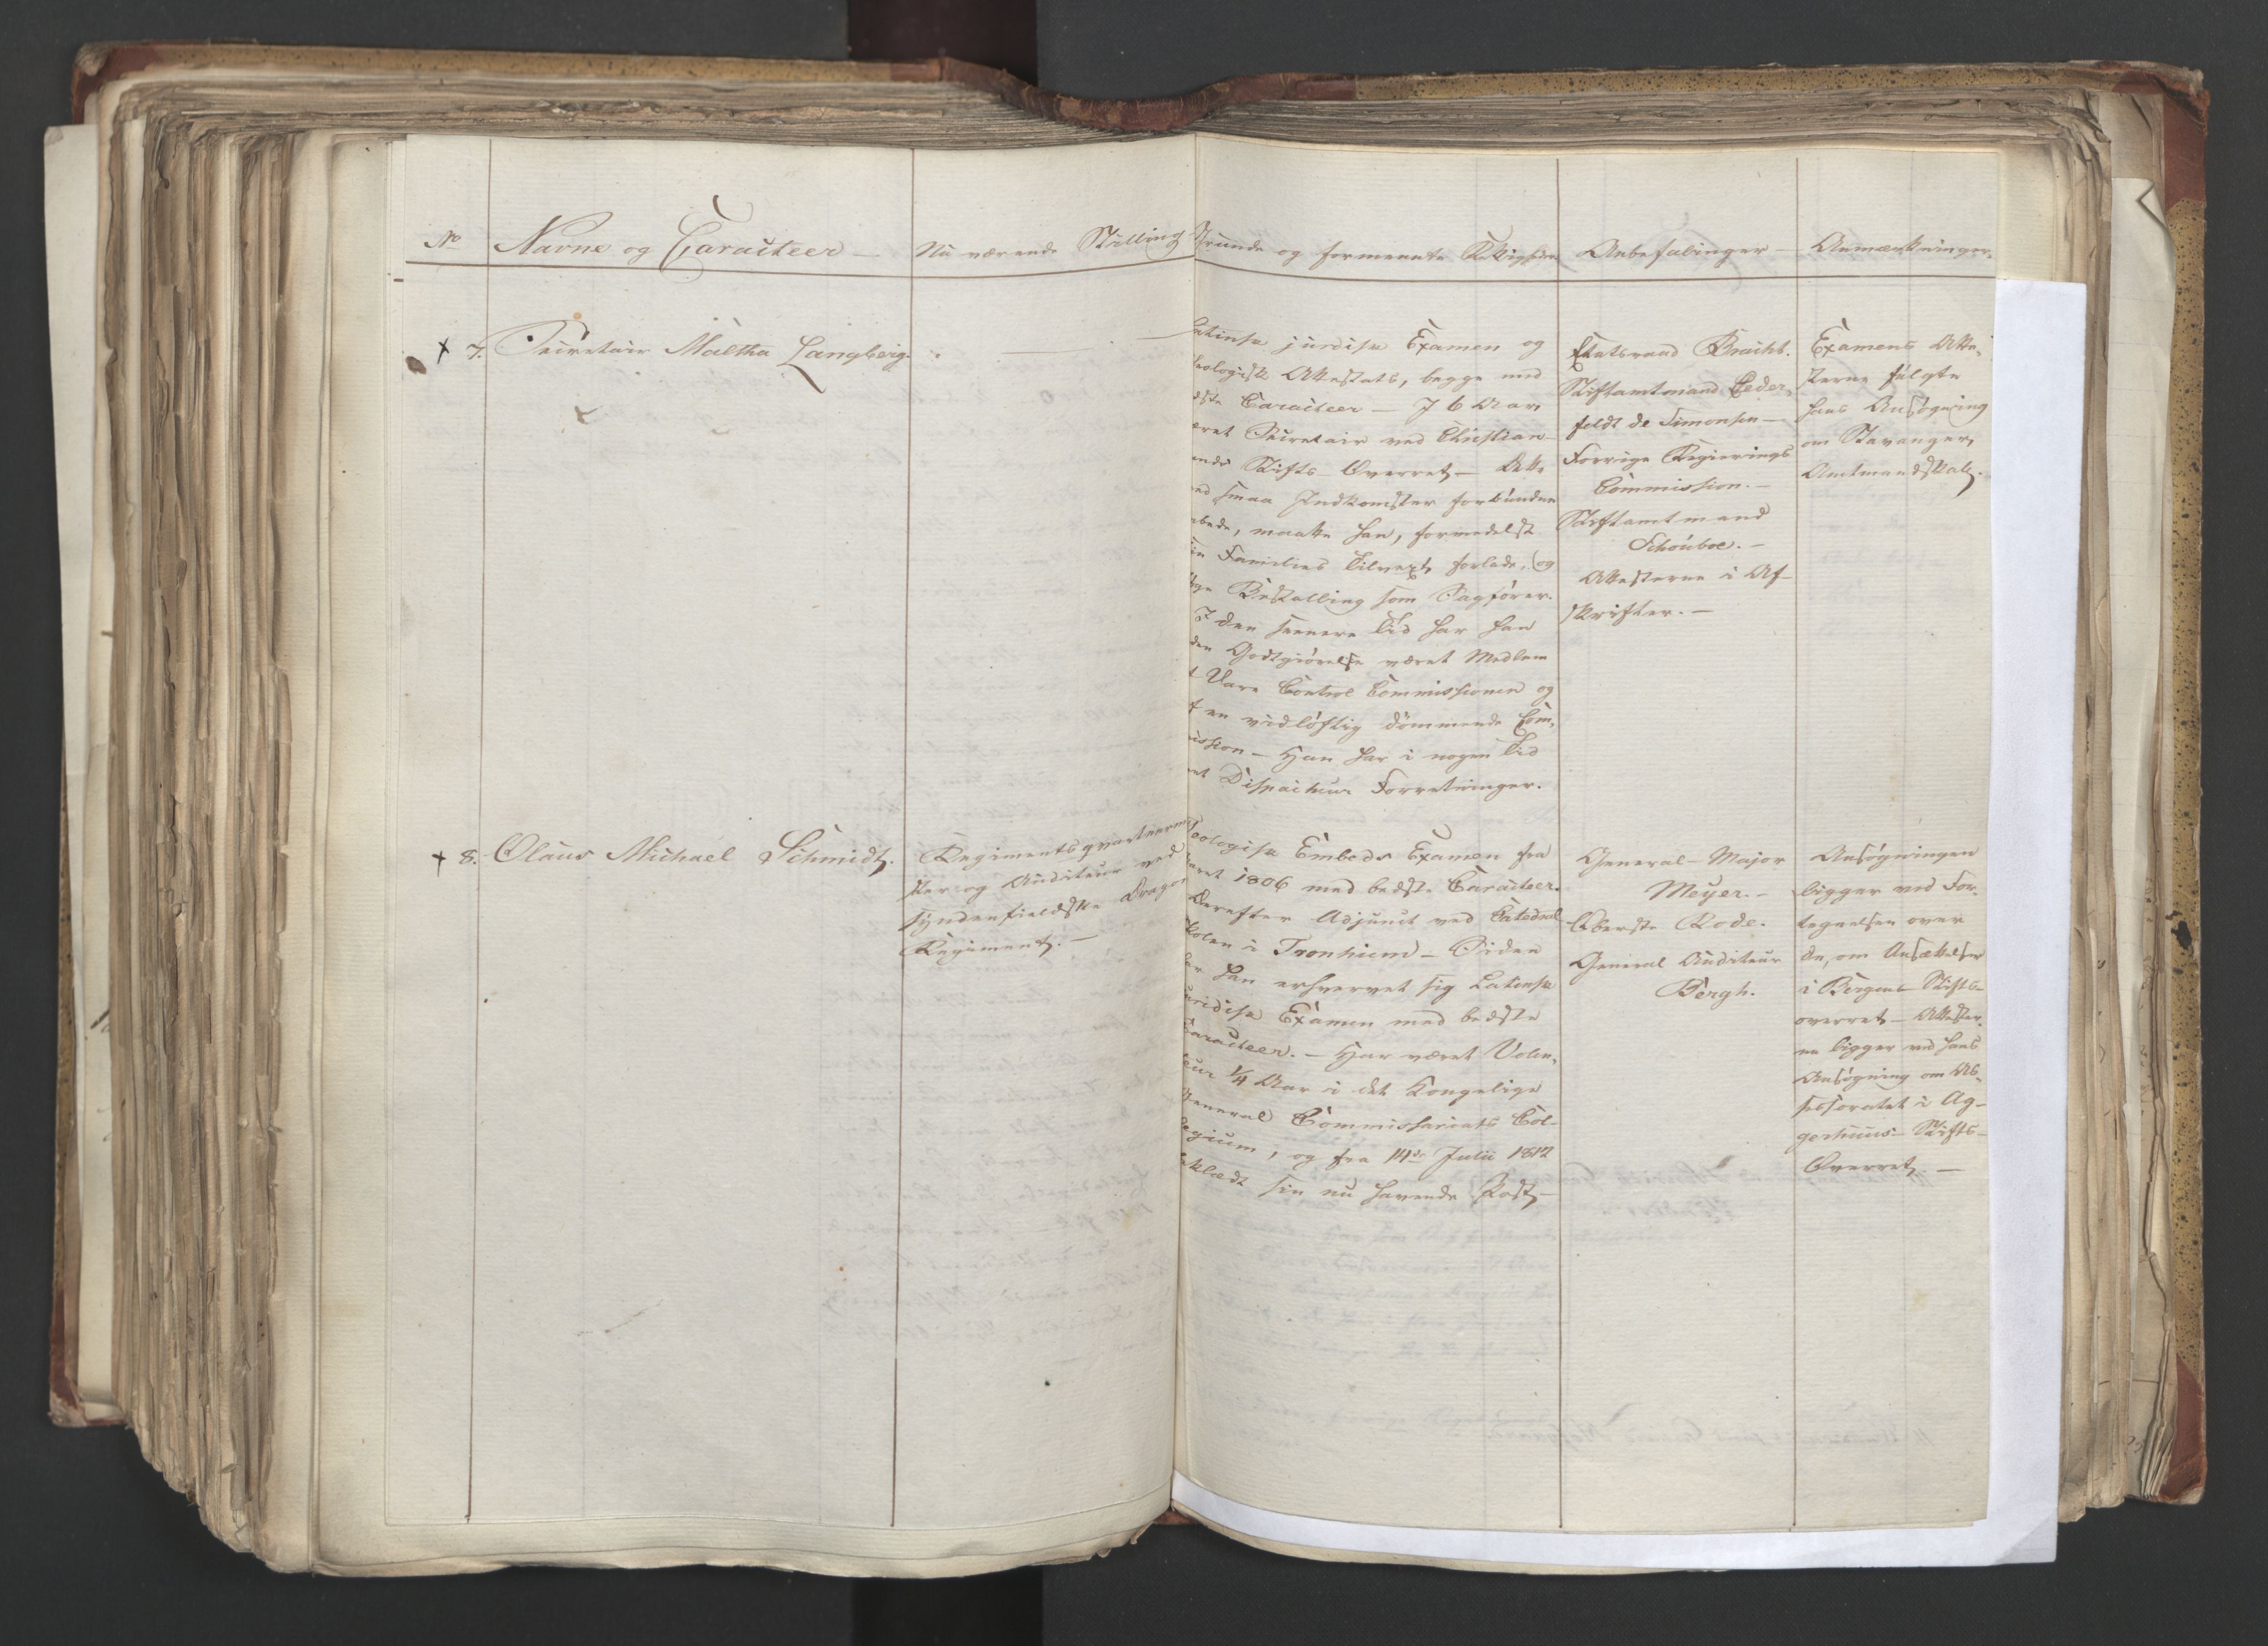 No
Navne og Caracteer —
Nu værende Stilling
Grunde og formeente Rettigheder
Anbefalinger —
Anmærkninger.
+ 7. Secretair Maltha Langberg.
Latinsk juridisk Examen og
Theologisk Attestats, begge med
bedste Caracteer — I 6 Aar,
været Secretair ved Christian-
sands Stifts Overret —
med smaa Indkomster forbundne
Embede, maatte han, formedelst
sin Families Tilvext, forlade, og
Bestalling som Sagfører.
I den senere Tid har han
uden Godtgiørelse været Medlem
af Vare Control Commissionen og
af en vidløftig dømmende Com-
mission — Han har i nogen Tid
Dispacheur Forretninger.
Etatsraad Bracht.
Stiftamtmand Ceder-
feldt de Simonsen —
Forrige Regierings
Commission. —
Stiftamtmand
Schouboe. —
Attesterne i Af-
skrifter. —
Examens Atte-
sterne fulgte
hans Ansøgning
om Stavanger
Amtmandskab.
+ 8. Olaus Michael Schmidt,
Regimentsqvarteerme-
ster og Auditeur ved
syndenfieldske Dragon
Regiment. —
Theologisk Embeds Examen fra
Aaret 1806 med bedste Caracteer.
Derefter Adjunct ved Catedral
Skolen i Tronhiem — Siden
har han erhvervet sig Latinsk
juridisk Examen med bedste
Caracteer. — Har været Volon-
teur 1/4 Aar i det Kongelige
General Commissariats Col-
legium, og fra 14de Julii 1812
beklædt sin nu havende Post —
General-Major
Meyer. —
Oberste Rode.
General Auditeur
Bergh.
Ansøgningen
ligger ved For-
tegnelsen over
de, om Ansættelser
i Bergens Stifts-
overret — Attester-
ne ligger ved hans
Ansøgning om As-
sessoratet i Ag-
gerhuus Stifts-
Overret, —